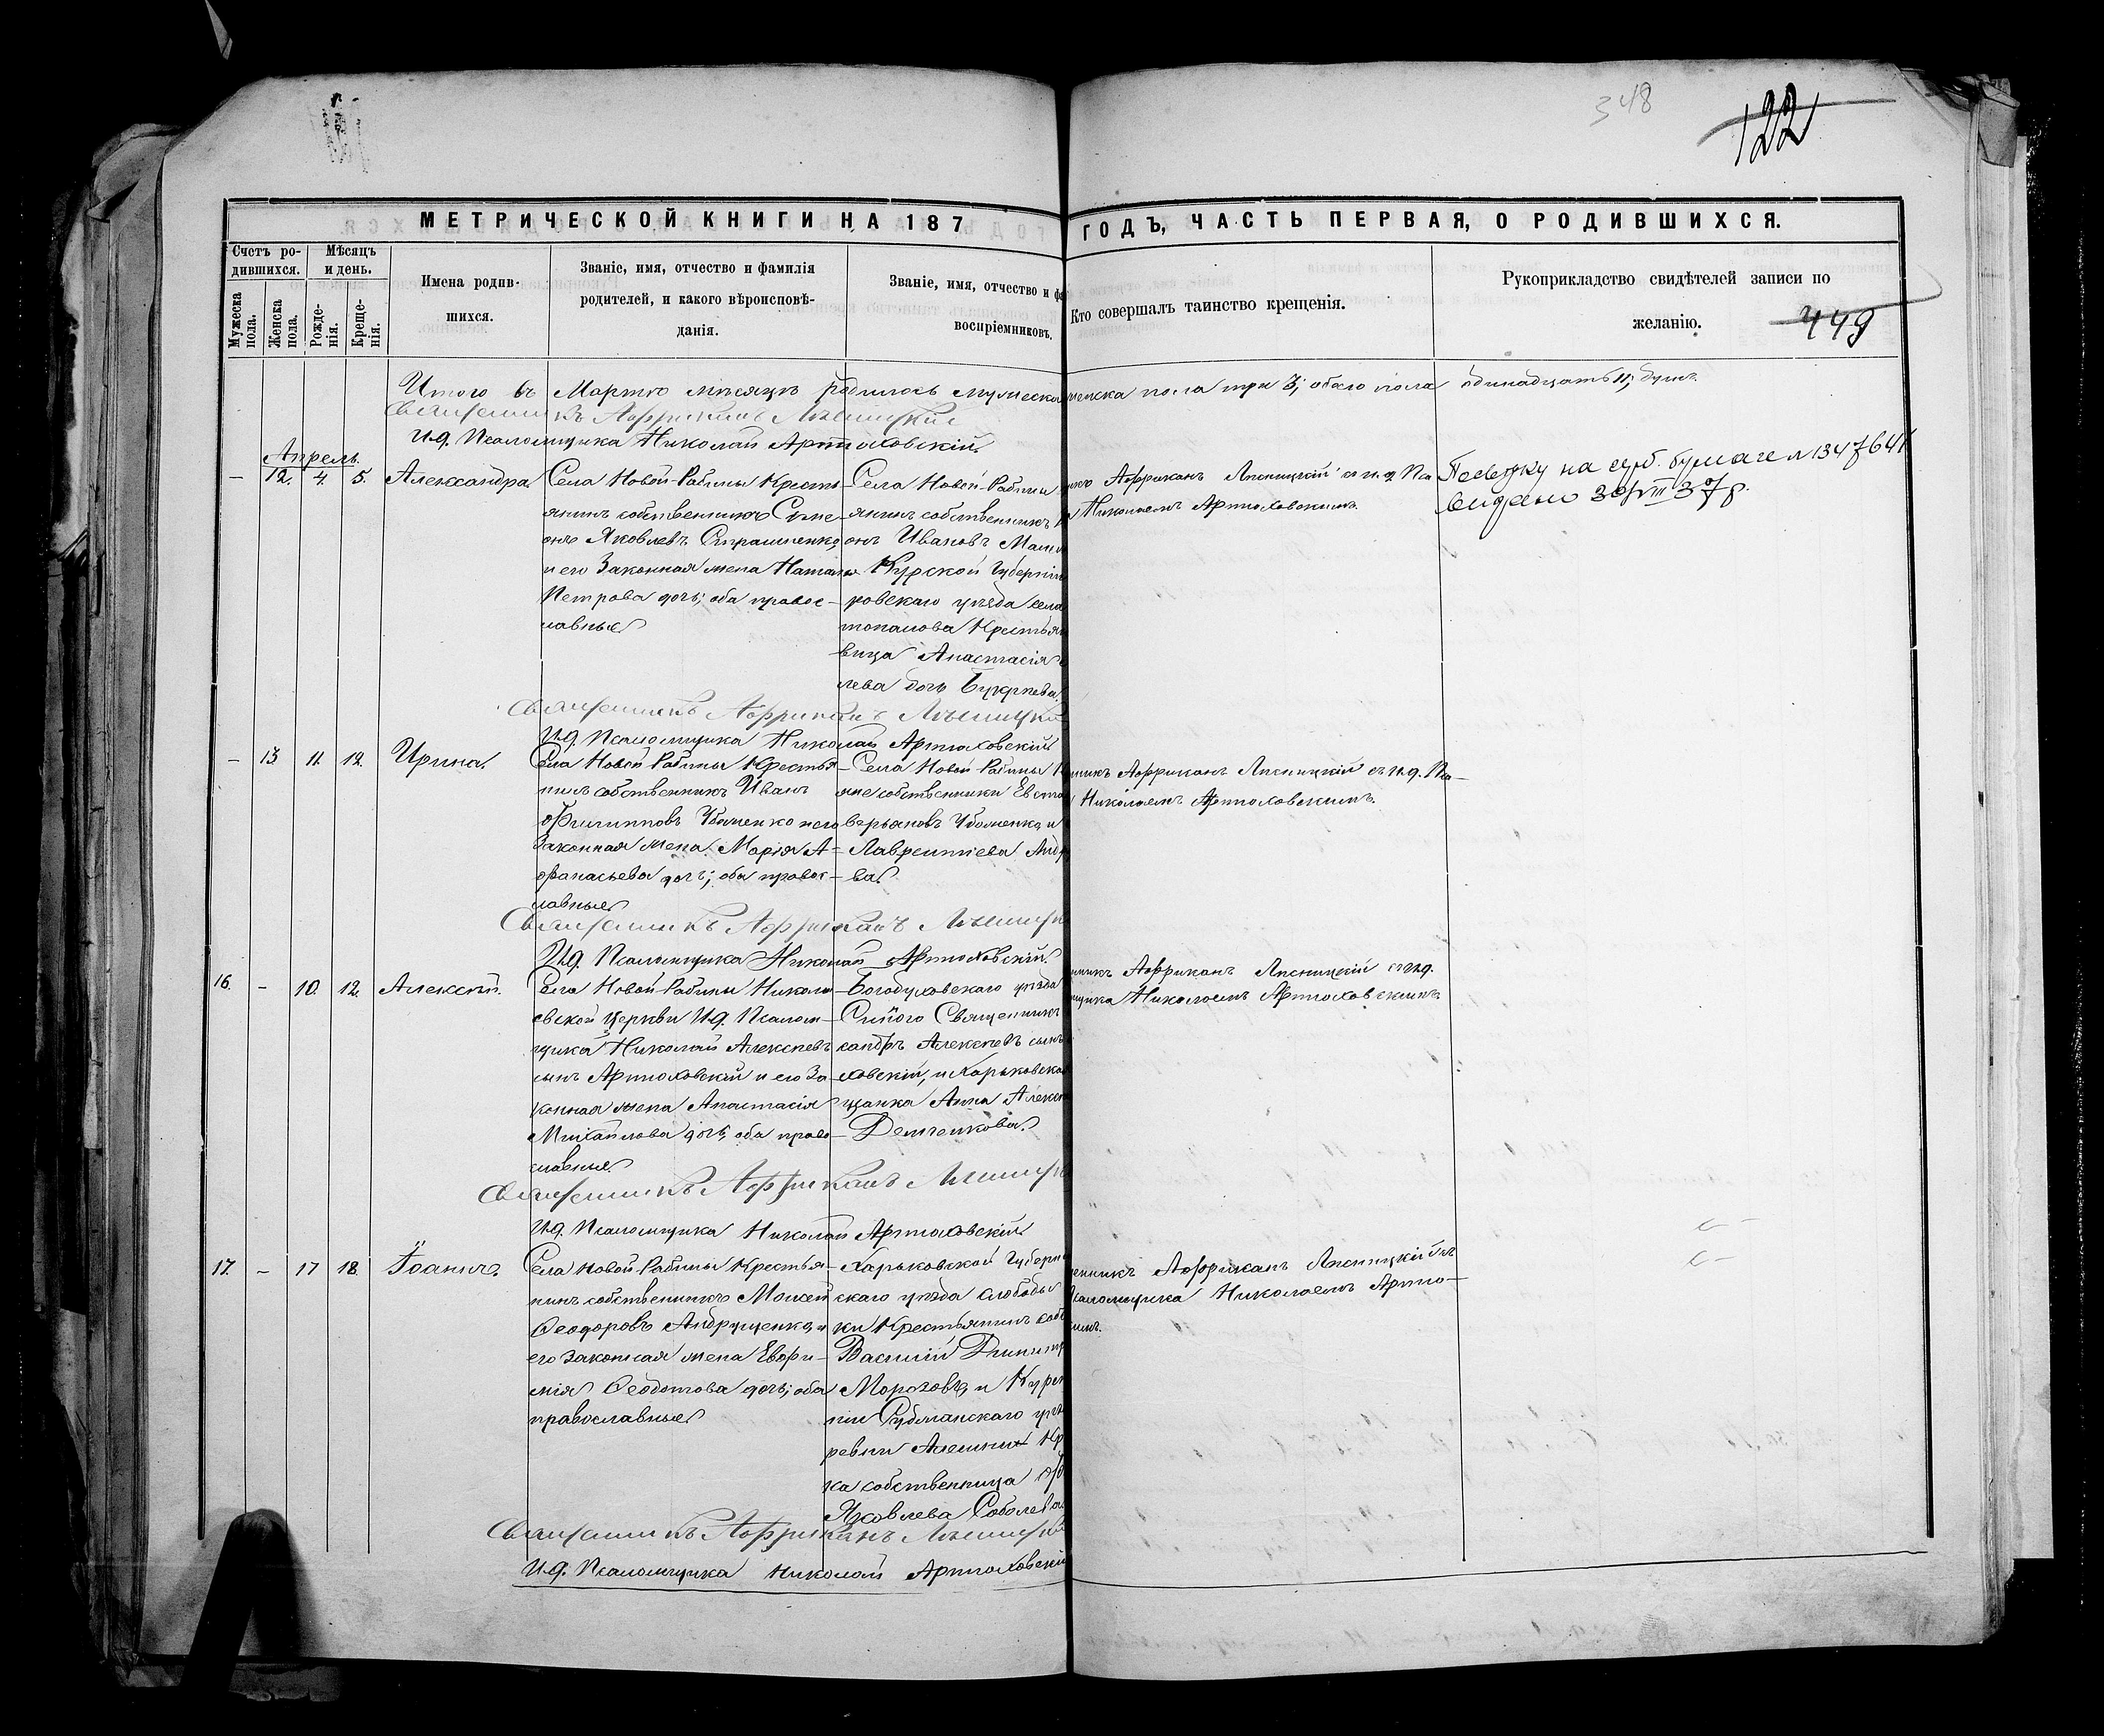 348
122
МЕТРИЧЕСКОЙ КНИГИ НА 187
ГОДЪ, ЧАСТЬ ПЕРВАЯ, О РОДИВШИХСЯ.
Счетъ ро-
дившихся.
Мѣсяцъ
и день.
Мужеска
пола.
Женска
пола.
Рожде-
нія.
Креще-
нія.
Имена родив-
шихся.
Званіе, имя, отчество и фамилія
родителей, и какого вѣроисповѣ-
данія.
Званіе, имя, отчество и фа
воспріемниковъ.
Кто совершалъ таинство крещенія.
Рукоприкладство свидѣтелей записи по
желанію.
449
Итого въ Мартѣ мѣсяцѣ родилось мужеска
женска пола три 3; обаго пола одинадцать 11;
Священникъ Аффриканъ Лисницкій
И.д. Псаломщика Николай Артюховскій
Апрель.
— 12. 4. 5. Александра
Села Новой-Рабины Кресть-
янинъ собственникъ Симе-
онъ Яковлевъ Страшненко,
и его Законная жена Наталья
Петрова дочь; оба правос-
лавные
Села Новой-Рабины
янинъ собственникъ
онъ Ивановъ
Курской Губерніи
ровскаго уѣзда села
топалова Крестьян
вица Анастасія
лева дочь
Аффриканъ Лисницкій съ и.д. Пса
Николаемъ Артюховскимъ.
на герб. бумаге № 1347641
видано 30/VIII 37 р.
Священникъ Аффриканъ Лисницкі
И.д. Псаломщика Николай Артюховскій
— 13. 11. 12. Ирина.
Села Новой-Рабины Крестья-
нинъ собственникъ Иванъ
Филипповъ Убоженко и его
Законная жена Марія А-
фанасьева дочь; оба правос-
лавные
Села Новой Рабины
яне собственники Евста
верьяновъ Убоженко, и
Лаврентіева
ва.
никъ Аффриканъ Лисницкій съ и.д. Пса-
Николаемъ Артюховскимъ.
Священникъ Аффриканъ Лисницк
И.д. Псаломщика Николай Артюховскій.
16. — 10. 12. Алексѣй.
Села Новой-Рабины Никола-
евской Церкви И.д. Псалом-
щика Николай Алексѣевъ
сынъ Артюховскій и его За-
конная жена Анастасія
Михайлова дочь; оба право-
славные.
Богодуховскаго уѣзда
Священникъ
сандръ Алексѣевъ сынъ
ховскій, и Харьковска
щанка Анна Алексѣ
Демченкова.
нникъ Аффриканъ Лисницкій съ и.д.
щика Николаемъ Артюховскимъ.
Священникъ Аффриканъ Лисницк
И.д. Псаломщика Николай Артюховскій
17. — 17 18. Іоаннъ.
Села Новой-Рабины Крестья-
нинъ собственникъ Моисей
Ѳеодоровъ Андрущенко, и
его законная жена Евфи-
мія Ѳеодотова дочь; оба
православные
Харьковской Губерн
скаго уѣзда слободы
ки Крестьянинъ собс
Василій Димитр
Морозовъ, и Курск
ніи Суджанскаго уѣз
ревни Алешни Кр
ка собственница
Яковлева Соболева
енникъ Аффриканъ Лисницкій съ
Псаломщика Николаемъ Артю-
имъ.
Священникъ Аффриканъ Лисницкі
И.д. Псаломщика Николай Артюховскій